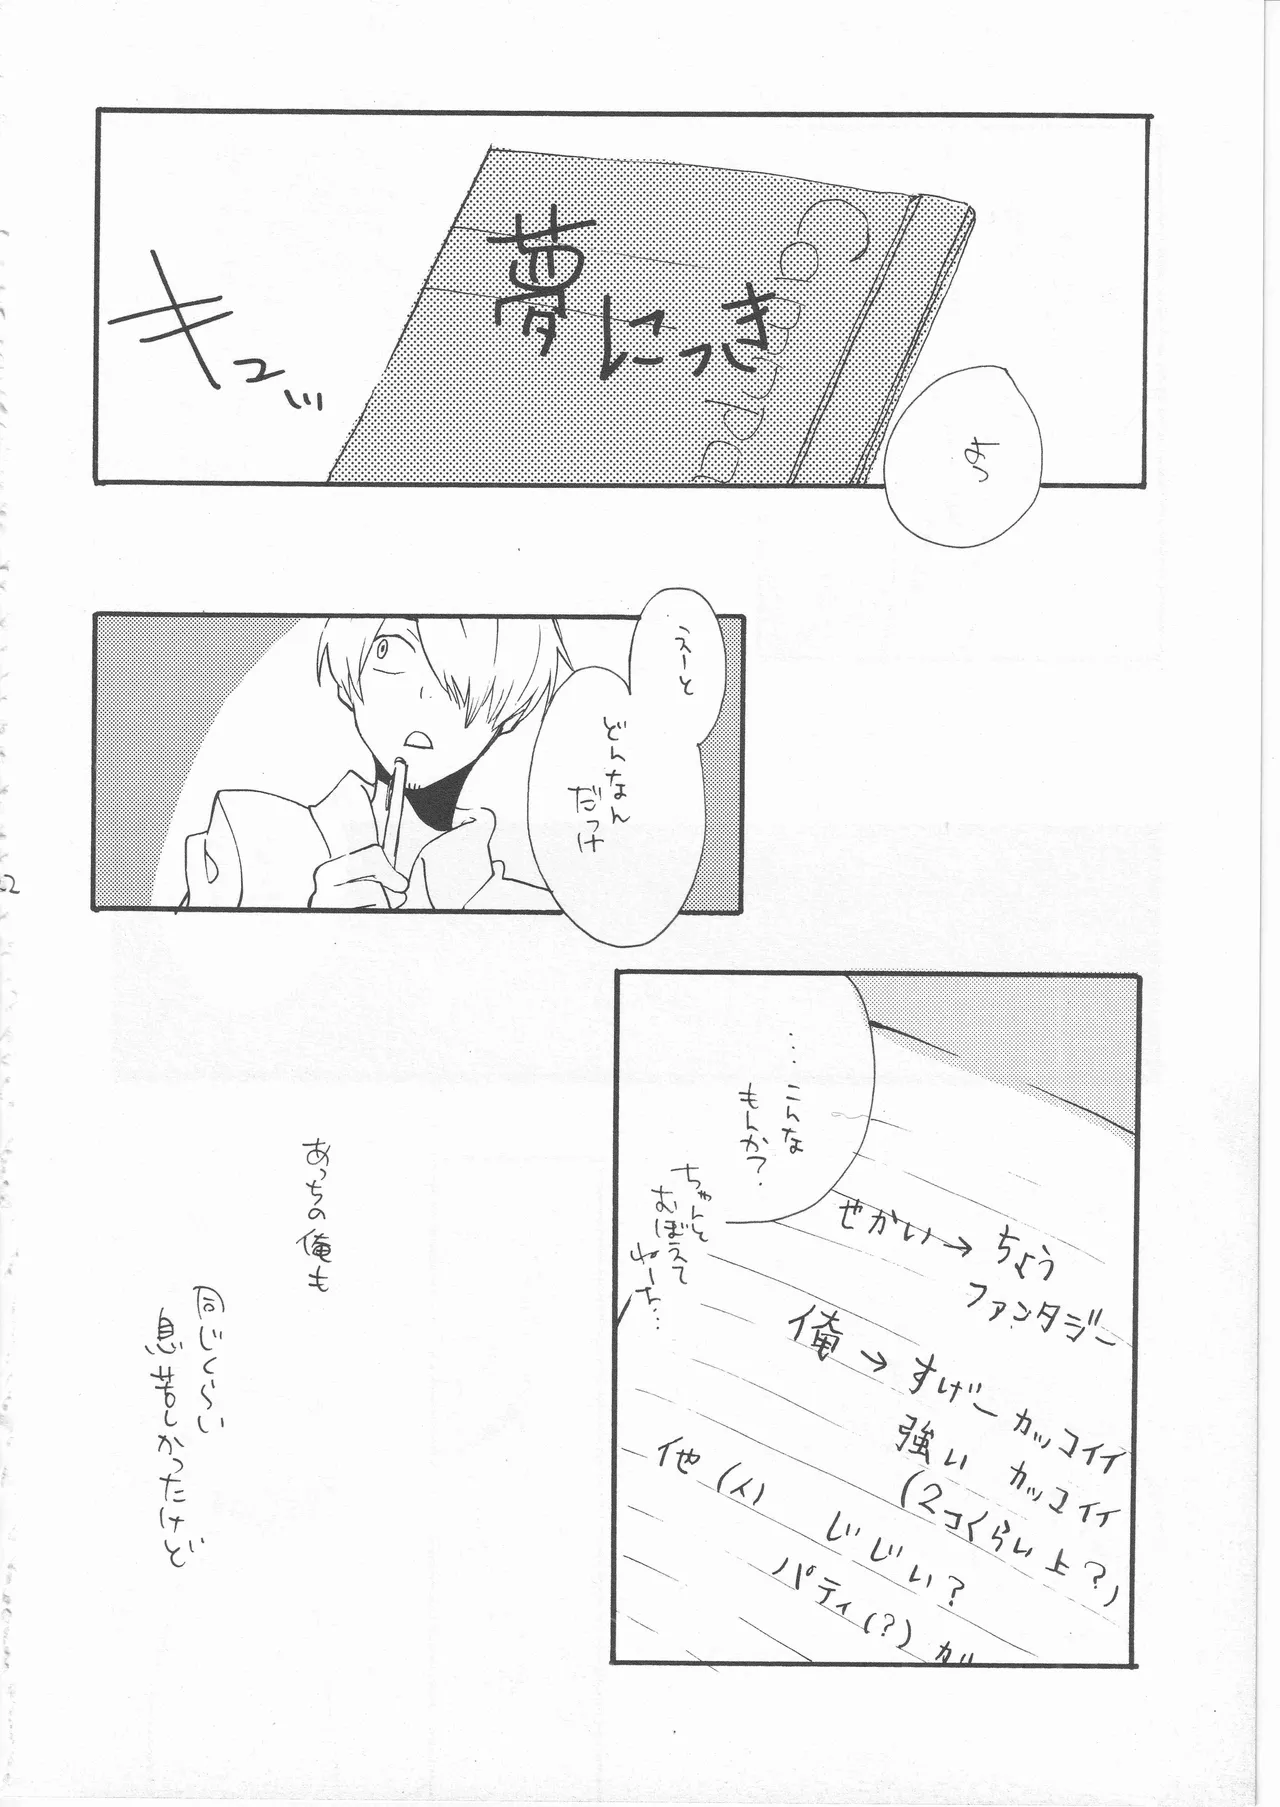 夢にっき
キュッ
よっ
えーと
どんなん
だっけ
…こんな
もんか?
ちゃんと
むぼえて
ねーな…
せかい→ちょう
ファンタジー
俺→すげーカッコイイ
強い カッコイイ
(2コくらい上?)
他(人) じじい?
パティ(?) ガッ
あっちの俺も
同じくらい
息苦しかったけど